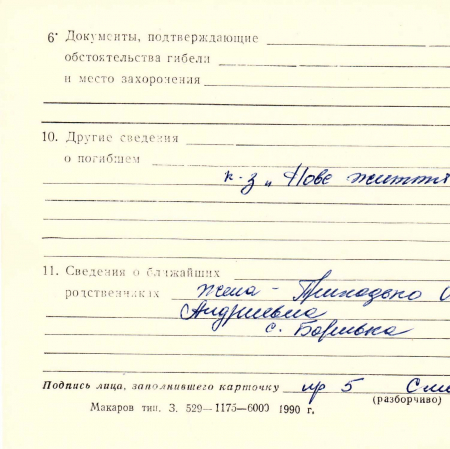 6. Документы, подтверждающие
обстоятельства гибели
и место захоронения
10. Другие сведения
о погибшем
к-з „Нове життя
11. Сведения о ближайших
родственниках Жена - Приходько О
Андриевна
с. Борлька
Подпись лица, заполнившего карточку пр 5 Сли
(разборчиво)
Макаров тип. З. 529—1175—6000 1990 г.